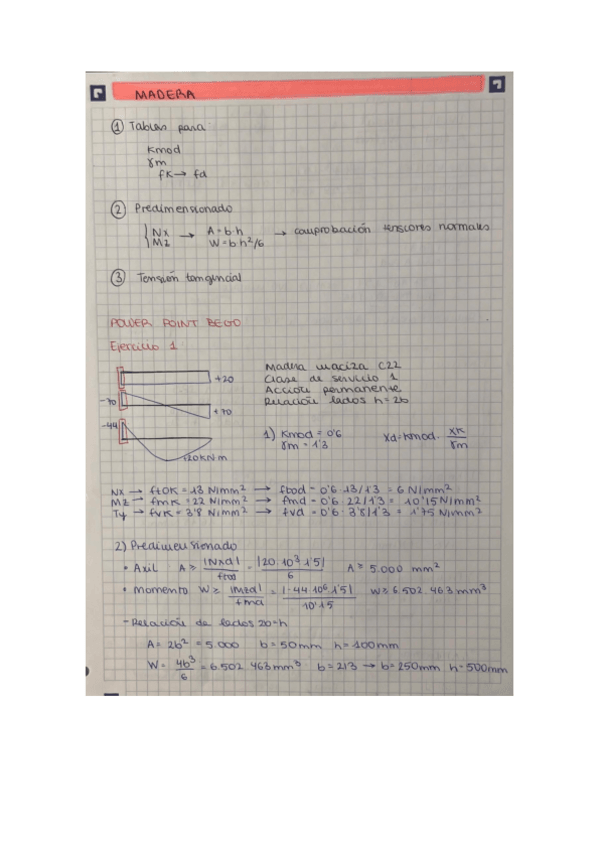 MADERA
① Tablas para:
Kmod
γm
fK → fd
② Predimensionado
{Nx → A = b·h → comprobación tensiones normales
Mz W = b h²/6
③ Tensión tangencial
POWER POINT BEGO
Ejercicio 1
+20
-70
+70
-44
+20KN·m
Madera maciza C22
Clase de servicio 1
Acción permanente
Relación lados h=2b
1) Kmod = 0'6
γm = 1'3
Xd = Kmod · XK/γm
Nx → ft0K = 13 N/mm² → ft0d = 0'6 · 13/1'3 = 6 N/mm²
Mz → fmK = 22 N/mm² → fmd = 0'6 · 22/1'3 = 10'15 N/mm²
Ty → fvK = 3'8 N/mm² → fvd = 0'6 · 3'8/1'3 = 1'75 N/mm²
2) Predimensionado
• Axil A ≥ |Nxd|/ft0d = |20·10³·1'5|/6 A ≥ 5.000 mm²
• Momento W ≥ |Mzd|/fmd = |-44·10⁶·1'5|/10'15 W ≥ 6.502.463 mm³
- Relación de lados 2b=h
A = 2b² = 5.000 b = 50mm h = 100mm
W = 4b³/6 = 6.502.463mm³ b = 213 → b = 250mm h = 500mm